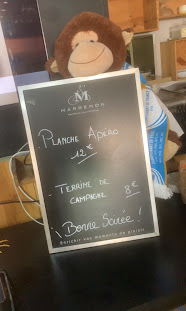 M
MANNENON
PLANCHE APÉRO
12 €
TERRINE DE
CAMPAGNE 8 €
¡ BONNE SOIRÉE !
Enrichir vos moments de plaisir